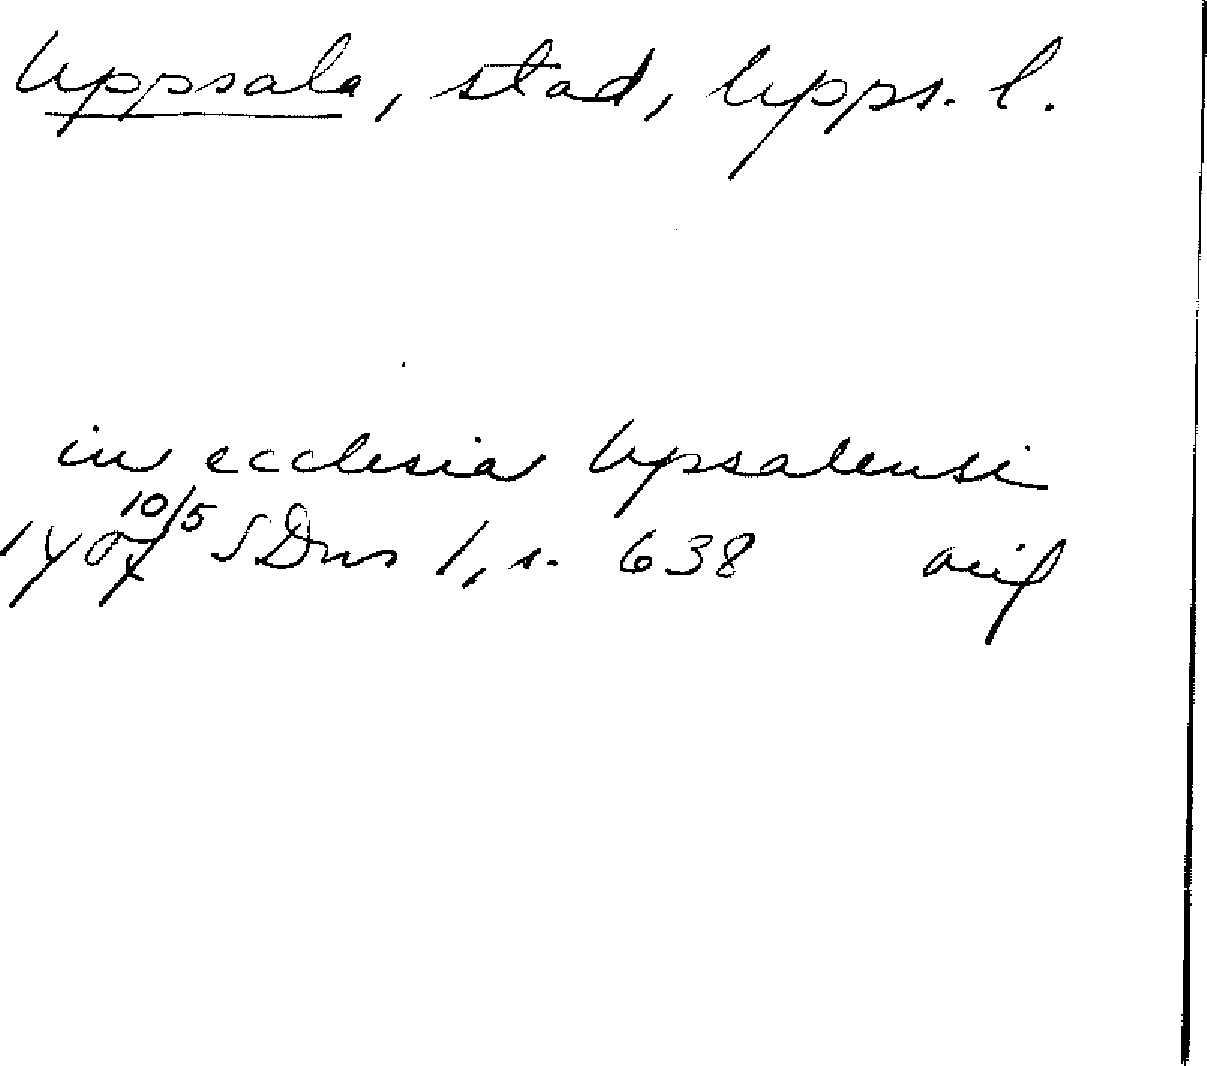 Uppsala, stad, Upps. l.
in ecclesia Upsalensi
1407 10/5 SDns 1, s. 638 avip